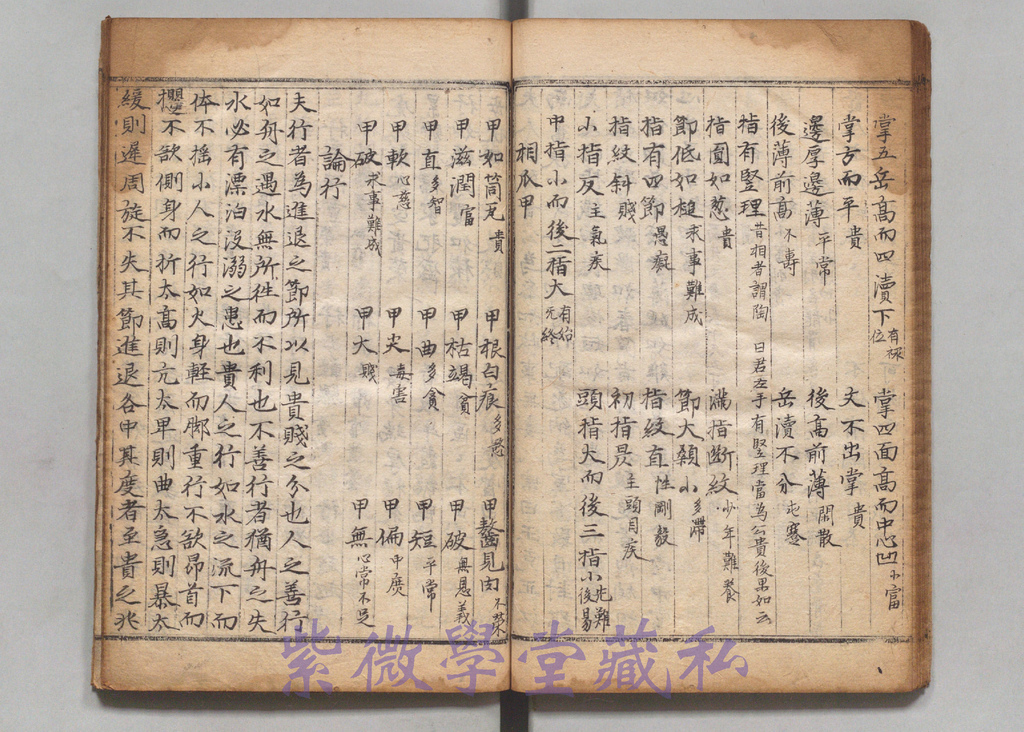 掌五岳高而四瀆下有祿位 掌四面高而中心凹小富
掌方而平貴 文不出掌貴
邊厚邊薄平常 後高前薄閑散
後薄前高不壽 岳瀆不分屯蹇
指有竪理昔相者謂陶 曰君左手有竪理當為公貴後果如云
指圓如葱貴 滿指斷紋少年難養
節低如槌求事難成 節大顙小多滯
指有四節愚癡 指紋直性剛毅
指紋斜賤 初指炅主頭目疾
小指反主氣疾 頭指大而後三指小先難後易
中指小而後二指大有始无終
相爪甲
甲如筒瓦貴 甲根白痕多愁 甲見肉不榮
甲滋潤富 甲枯竭貧 甲破無恩義
甲直多智 甲曲多貪 甲短平常
甲軟心慈 甲尖毒害 甲偏甲庶
甲破求事難成 甲大賤 甲無心常不足
論行
夫行者為進退之節所以見貴賤之分也人之善行
如舟之遇水無所往而不利也不善行者猶舟之失
水必有漂泊沒溺之患也貴人之行如水之流下而
体不搖小人之行如火身輕而脚重行不欲昂首而
攖不欲側身而折太高則亢太卑則曲太急則暴太
緩則遲周旋不失其節進退各中其度者至貴之兆
紫微學堂藏私